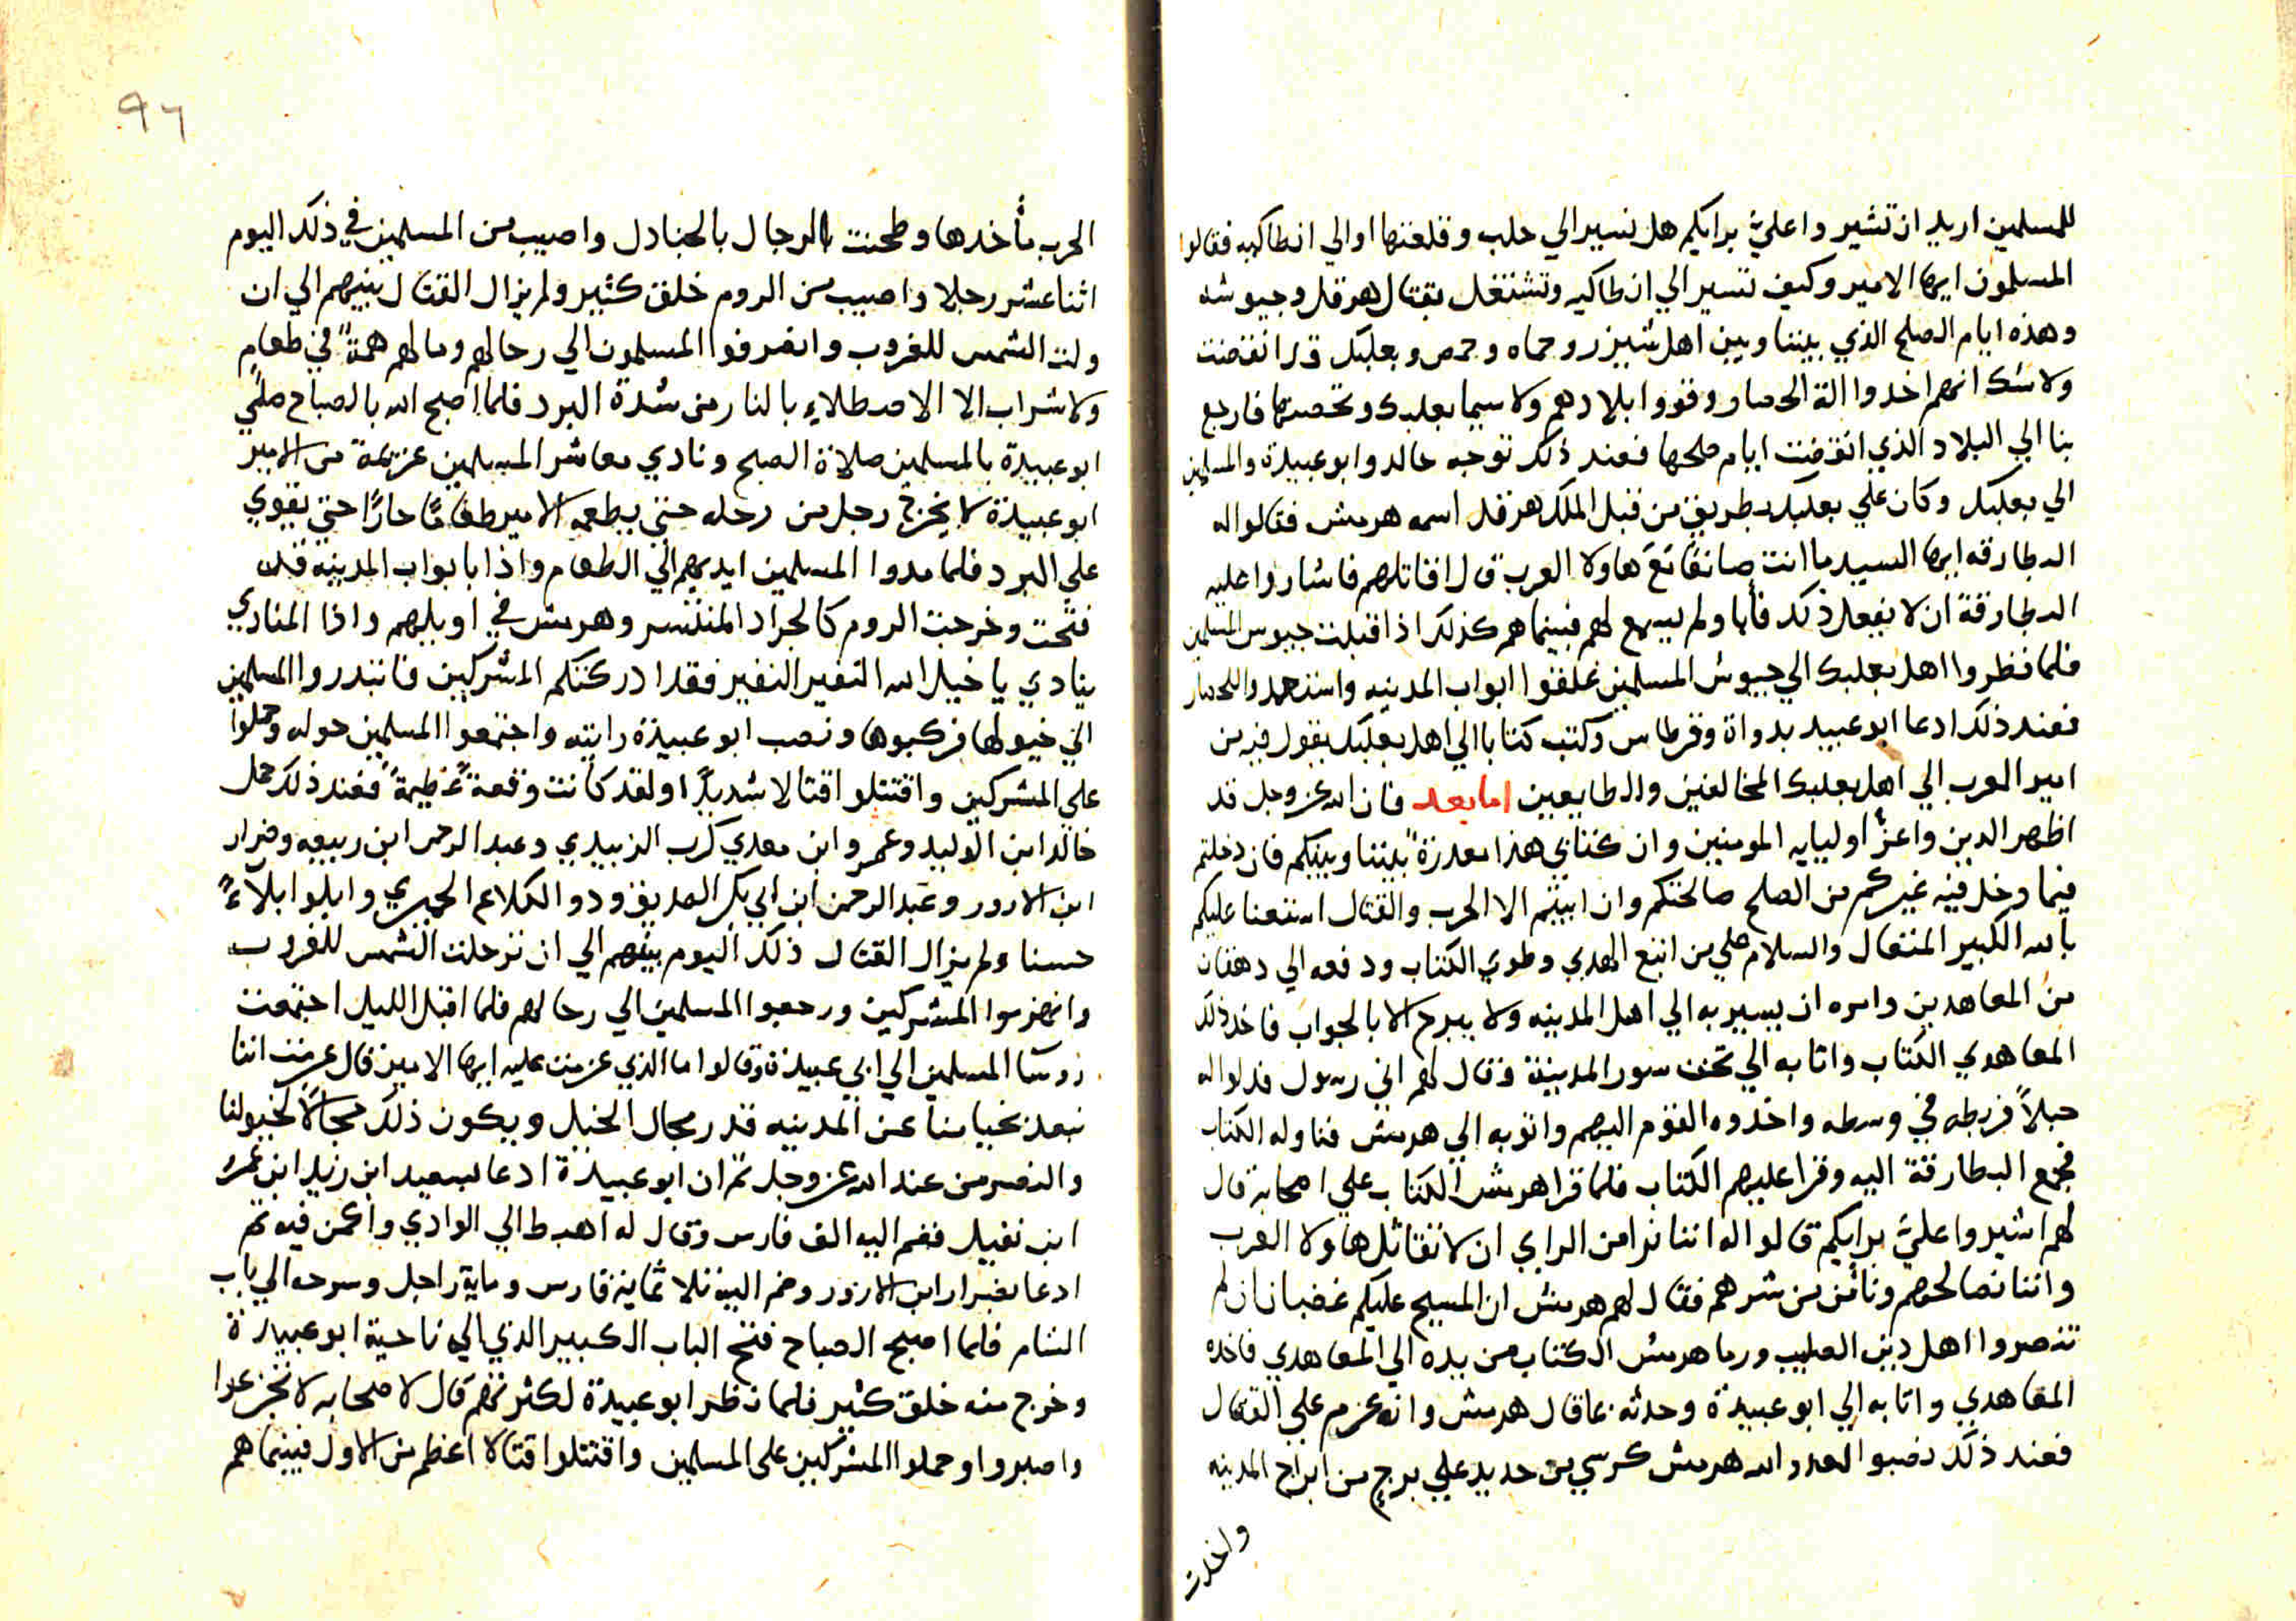 للمسلمين اريد ان تشيروا عليَّ برايكم هل نسير الي حلب وقلعتها او الي انطاكيه فقالوا
المسلمون ايها الامير وكيف تسير الي انطاكيه وتشتغل بقتال هرقل وجيوشه
وهذه ايام الصلح الذي بيننا وبين اهل شيزر وحماه وحمص وبعلبك قد انقضت
ولا شك انهم اخدوا الة الحصار وقووا بلادهم ولا سيما بعلبك وتحصنها فارجع
بنا الي البلاد الذي انقضت ايام صلحها فعند ذلك توجه خالد وابو عبيدة والمسلمين
الي بعلبك وكان علي بعلبك بطريق من قبل الملك هرقل اسمه هرمس فقالوا له
البطارقه ايها السيد ما انت صانعًا مَعَ هاولا العرب قال اقاتلهم فاشاروا عليه
البطارقة ان لا يفعل ذلك فأبا ولم يسمع لهم فبينما هم كذلك اذ اقبلت جيوس المسلمين
فلما نظروا اهل بعلبك الي جيوش المسلمين غلقوا ابواب المدينه واستعدوا للحصار
فعند ذلك ادعا ابو عبيد بدواة وقرطاس وكتب كتابا الي اهل بعلبك يقول فيه من
امير العرب الي اهل بعلبك المخالفين والطايعين اما بعد فان الله عز وجل قد
اظهر الدين واعزَّ اوليايه المومنين وان كتابي هذا معدرةً بيننا وبينكم فان دخلتم
فيما دخل فيه غيركم من الصلح صالحتكم وان ابيتم الا الحرب والقتال استعنا عليكم
بالله الكبير المتعال والسلام علي من اتبع الهدي وطوي الكتاب ودفعه الي دهقان
من المعاهدين وامره ان يسير به الي اهل المدينه ولا يبرح الا بالجواب فاخد ذلك
المعاهدي الكتاب واتا به الي تحت سور المدينة وقال لهم اني رسول فدلوا له
حبلاً فربطه في وسطه واخدوه القوم اليهم واتوا به الي هرمس فناوله الكتاب
فجمع البطارقة اليه وقرا عليهم الكتاب فلما قرا هرمس الكتاب علي اصحابه قال
لهم اشيروا عليَّ برايكم قالوا له اننا نرا من الراي ان لا نقاتل هاولا العرب
واننا نصالحهم ونأمن من شرهم فقال لهم هرمس ان المسيح عليكم غضبان ان لم
تنصروا اهل دين الصليب ورما هرمس الكتاب من يده الي المعاهدي فاخده
المعاهدي واتا به الي ابو عبيدة وحدثه بما قال هرمس وانه عزم علي القتال
فعند ذلك نصبوا لعدو الله هرمس كرسي من حديد علي برج من ابراج المدينه
واخدت
٩٦
الحرب مأخدها وطحنت الرجال بالجنادل واصيب من المسلمين في ذلك اليوم
اثنا عشر رجلا واصيب من الروم خلق كثير ولم يزال القتال بينهم الي ان
ولت الشمس للغروب وانصرفوا المسلمون الي رحالهم وما لهم همةً في طعام
ولا شراب الا الاصطلاءِ بالنار من شدة البرد فلما اصبح الله بالصباح صلي
ابو عبيدة بالمسلمين صلاة الصبح ونادي معاشر المسلمين عزيمة من الامير
ابو عبيدة لا يخرج رجل من رحله حتي يطعمه الامير طعامًا حارًا حتي يقوي
علي البرد فلما مدوا المسلمين ايديهم الي الطعام واذا بابواب المدينه قد
فتحت وخرجت الروم كالجراد المنتشر وهرمس في اويلهم واذا المنادي
ينادي يا خيل الله النفير النفير فقد ادركتكم المشركين فابتدروا المسلمين
الي خيولها فركبوها ونصب ابو عبيدة رايته واجتمعوا المسلمين حوله وحملوا
على المشركين واقتتلوا قتالا شديدًا ولقد كانت وقعةً عظيمةً فعند ذلك حمل
خالد ابن الوليد وعمرو ابن معدي كرب الزبيدي وعبد الرحمن ابن ربيعه وضرار
ابن الازور وعبد الرحمن ابن ابي بكر الصديق ودو الكلاع الحميري وابلوا بلاءً
حسنا ولم يزال القتال ذلك اليوم بينهم الي ان ترحلت الشمس للغروب
وانهزموا المشركين ورجعوا المسلمين الي رحالهم فلما اقبل الليل اجتمعت
روسا المسلمين الي ابي عبيدة وقالوا ما الذي عزمت عليه ايها الامير قال عزمت اننا
نبعد بخيامنا عن المدينه قدر مجال الخيل ويكون ذلك مجالاً لخيولنا
والنصر من عند الله عز وجل ثم ان ابو عبيدة ادعا بسعيد ابن زيد ابن عمر
ابن نفيل فضم اليه الف فارس وقال له اهبط الي الوادي واكمن فيه ثم
ادعا بضرار ابن الازور وضم اليه ثلاثماية فارس وماية راجل وسرحه الي باب
الشام فلما اصبح الصباح فتح الباب الكبير الذي الي ناحية ابو عبيدة
وخرج منه خلق كثير فلما نظر ابو عبيدة لكثرتهم قال لاصحابه لا تجزعوا
واصبروا وحملوا المشركين على المسلمين واقتتلوا قتالا اعظم من الاول فبينما هم